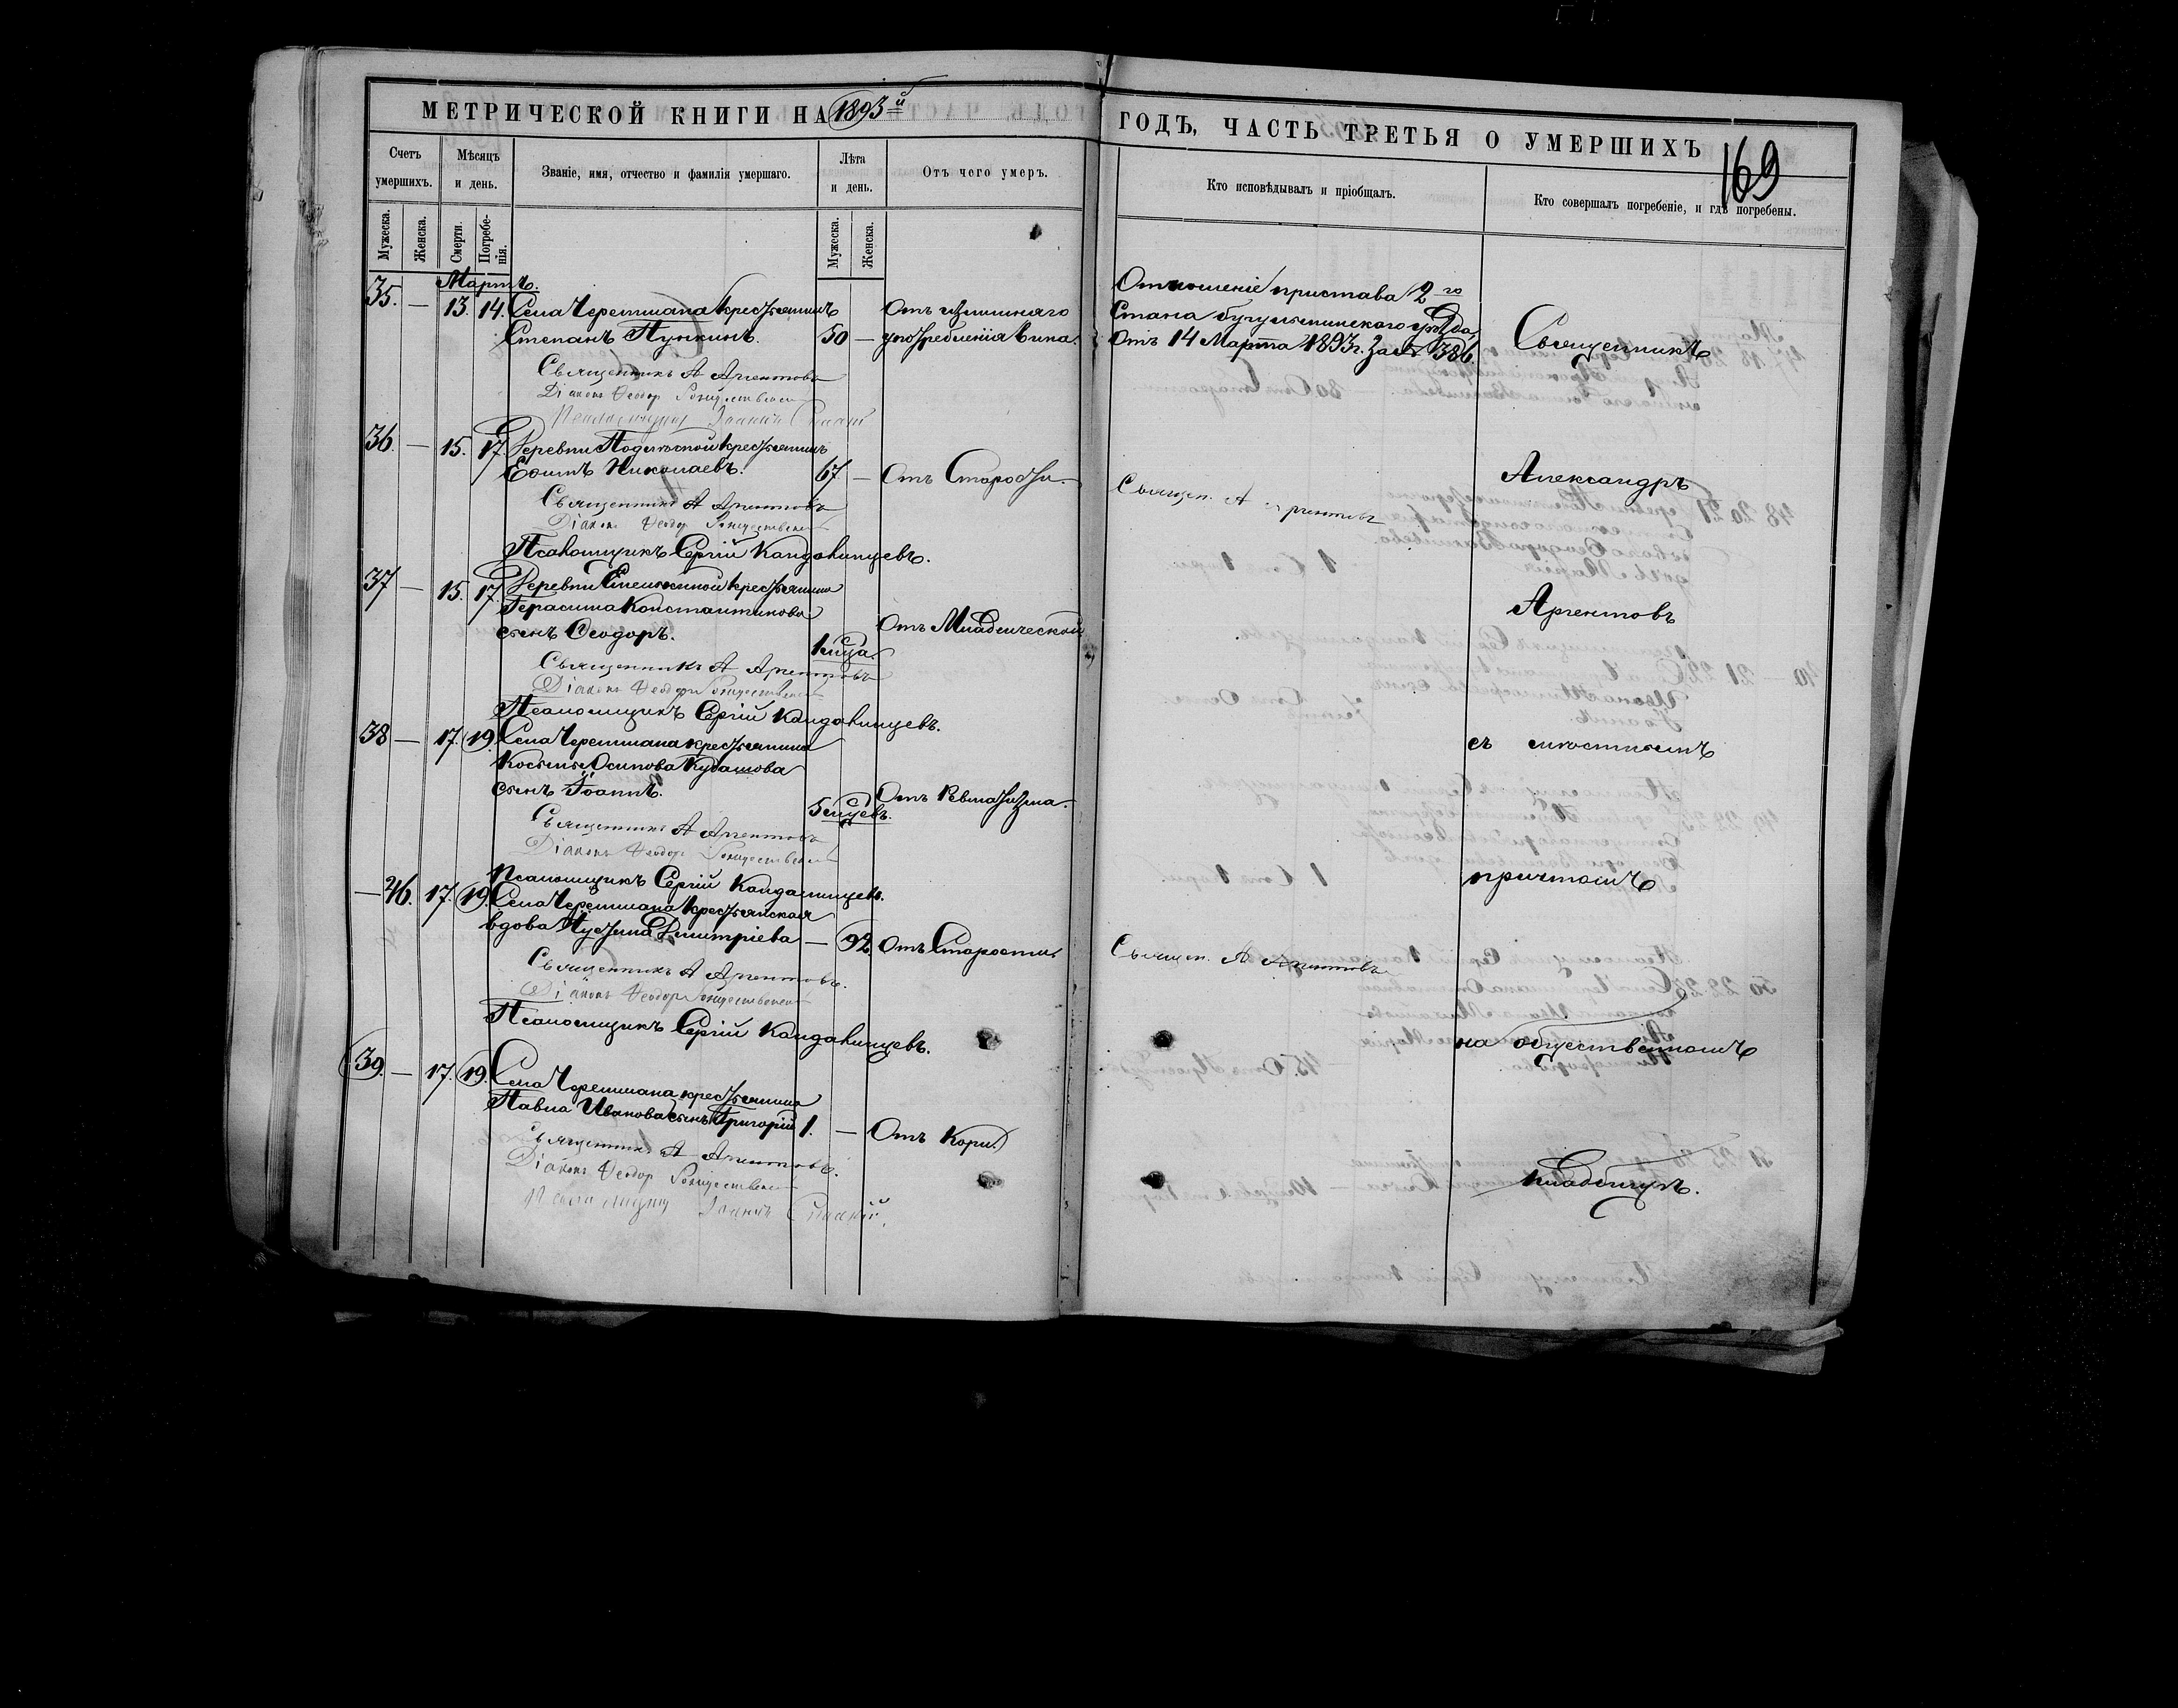 МЕТРИЧЕСКОЙ КНИГИ НА 1893й ГОДЪ, ЧАСТЬ ТРЕТЬЯ О УМЕРШИХЪ
169
Счетъ умершихъ.
Мѣсяцъ и день.
Званіе, имя, отчество и фамилія умершаго.
Лѣта и день.
Отъ чего умеръ.
Кто исповѣдывалъ и пріобщалъ.
Кто совершалъ погребеніе, и гдѣ погребены.
Мужеска.
Женска.
Смерти.
Погребенія.
Мужеска.
Женска.
Мартъ.
35. — 13. 14. Села Черемшана крестьянинъ
Степанъ Пункинъ. 50 —
Отъ излишняго
употребленія вина.
Отношеніе пристава 2го
Стана бугульминскаго уѣзда,
отъ 14 Марта 1893 г. за № 386.
Священникъ
Священникъ А Аргентовъ
Діаконъ Ѳеодор Рождественскій
Псаломщикъ Іоаннъ Спасскій
36. — 15. 17. Деревни Подлѣсной крестьянинъ
Ефимъ Николаевъ. 67. — Отъ Старости.
Священ. А Аргентовъ
Александръ
Священникъ А Аргентовъ
Діаконъ Ѳеодор Рождественскій
Псаломщикъ Сергій Кандалинцевъ.
37 — 15. 17. Деревни Емелькиной крестьянина
Герасима Константинова
сынъ Ѳеодоръ.
1 мѣсяца.
Отъ Младенческой
Аргентовъ
Священникъ А Аргентовъ
Діаконъ Ѳеодоръ Рождественскій
Псаломщикъ Сергій Кандалинцевъ.
38 — 17. 19. Села Черемшана крестьянина
Косьмы Осипова Кудашова
сынъ Іоаннъ.
5 мѣсяцевъ.
Отъ Ревматизма.
съ мѣстнымъ
Священникъ А Аргентовъ
Діаконъ Ѳеодор Рождественскій
Псаломщикъ Сергій Кандалинцевъ.
— 46. 17. 19. Села Черемшана крестьянская
вдова Іустина Димитріева — 92. Отъ Старости.
Священ. А Аргентовъ
причтомъ
Священникъ А Аргентовъ.
Діаконъ Ѳеодор Рождественскій
Псаломщикъ Сергій Кандалинцевъ.
на общественномъ
39. — 17. 19. Села Черемшана крестьянина
Павла Иванова сынъ Григорій 1. — Отъ Кори.
Священникъ А Аргентовъ.
Діаконъ Ѳеодор Рождественскій
Псаломщикъ Іоаннъ Спасскій.
кладбищѣ.